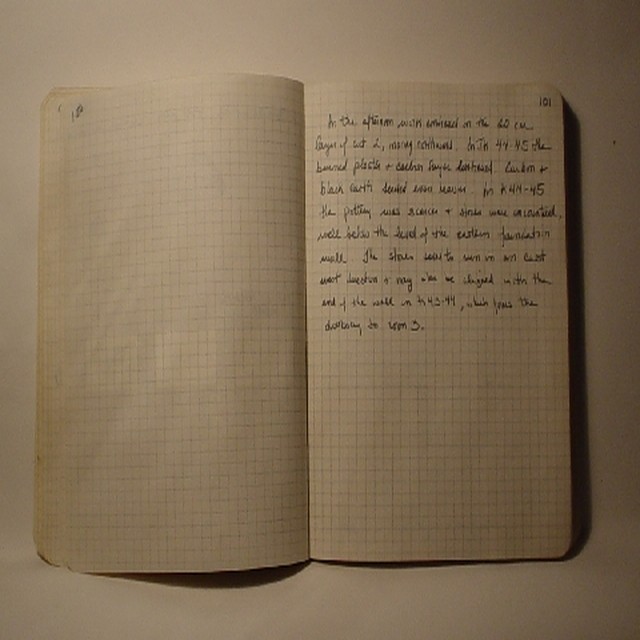 100
101
In the afternoon work continued on the 60 cm
layer of cut 2, moving northward. In Jn 44-45 the
burned plaster + carbon layer continued. Carbon +
black earth seemed even heavier. In K 44-45
the pottery was scarcer + stones were encountered,
well below the level of the eastern foundation
wall. The stones seem to run in an east
west direction + may also be aligned with the
end of the wall in K 43-44, which forms the
doorway to room 3.